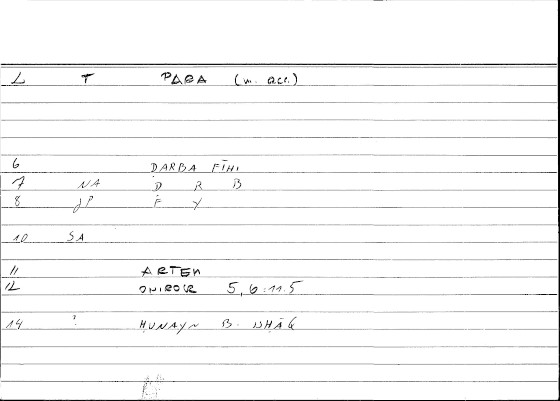 L T PAGA (m. acc.)
6 DARBA FĪHI
7 NA D R B
8 JP F Y
10 SA
11 ARTEM
12 ONIROCR 5,6:11.5
14 ? HUNAYN B. ISHĀQ